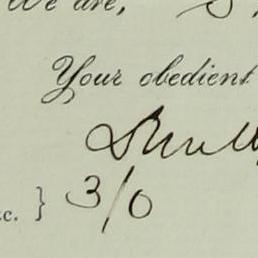 We are, S
Your obedient
c. } 3/0